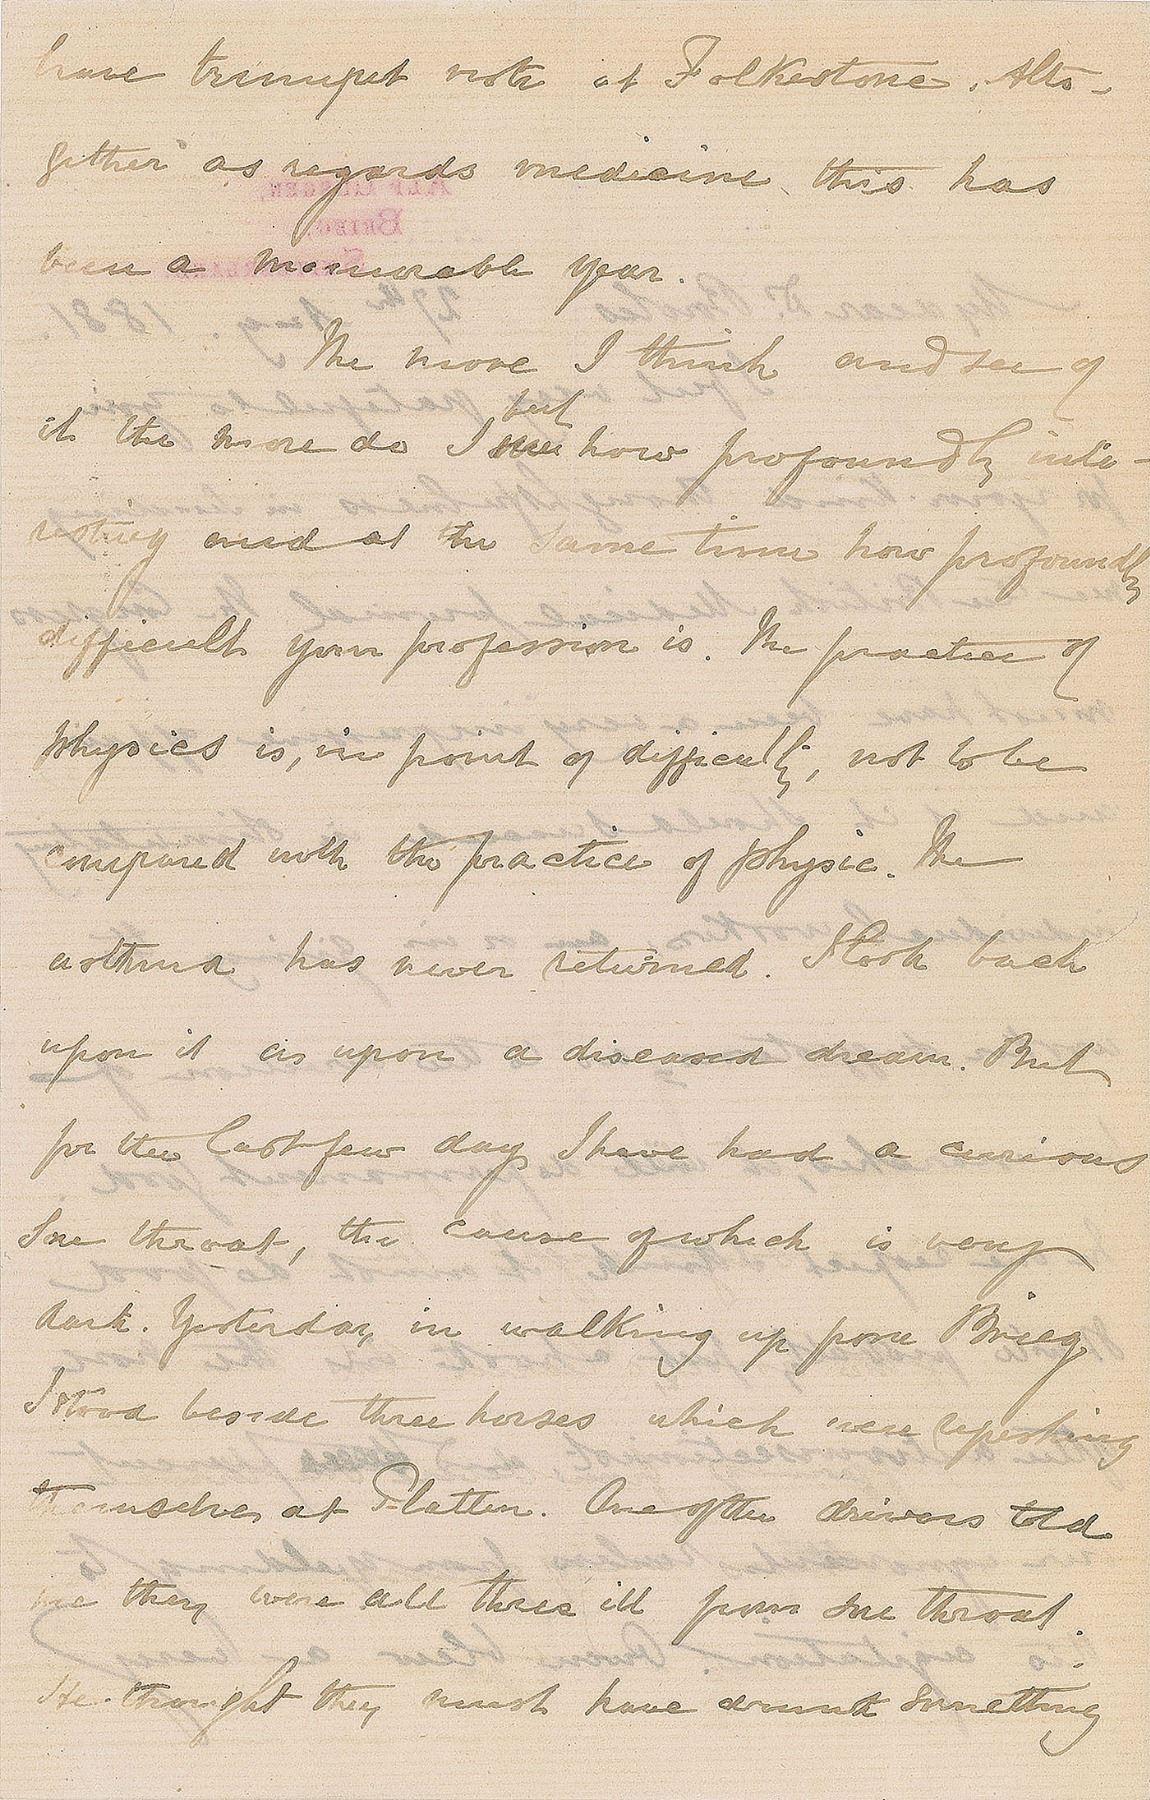 brave trumpet note at Folkestone. Alto-
gether as regards medicine this has
been a memorable year.
The more I think and see of
it the more do I see feel how profoundly inte-
resting and at the same time how profoundly
difficult your profession is. The practice of
physics is, in point of difficulty, not to be
compared with the practice of physic. The
asthma has never returned. I look back
upon it as upon a diseased dream. But
for the last few days I have had a curious
sore throat, the cause of which is very
dark. Yesterday, in walking up from Brieg
I stood beside three horses which were refreshing
themselves at Platten. One of the drivers told
me they were all three ill from sore throat.
He thought they must have drunk something